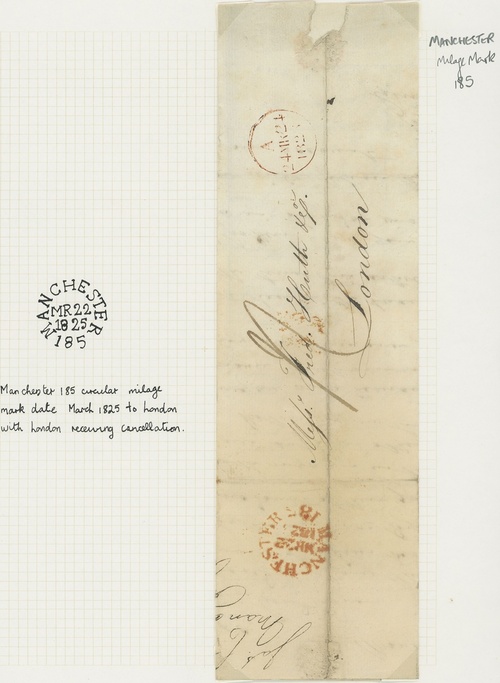 MANCHESTER
Milage Mark
185
MANCHESTER
MR 22
1825
185
Manchester 185 circular milage
mark date March 1825 to London
with London receiving cancellation.
A
24 MR 24
Messrs Fred. Huth & Co.
London
MANCHESTER
MR 22